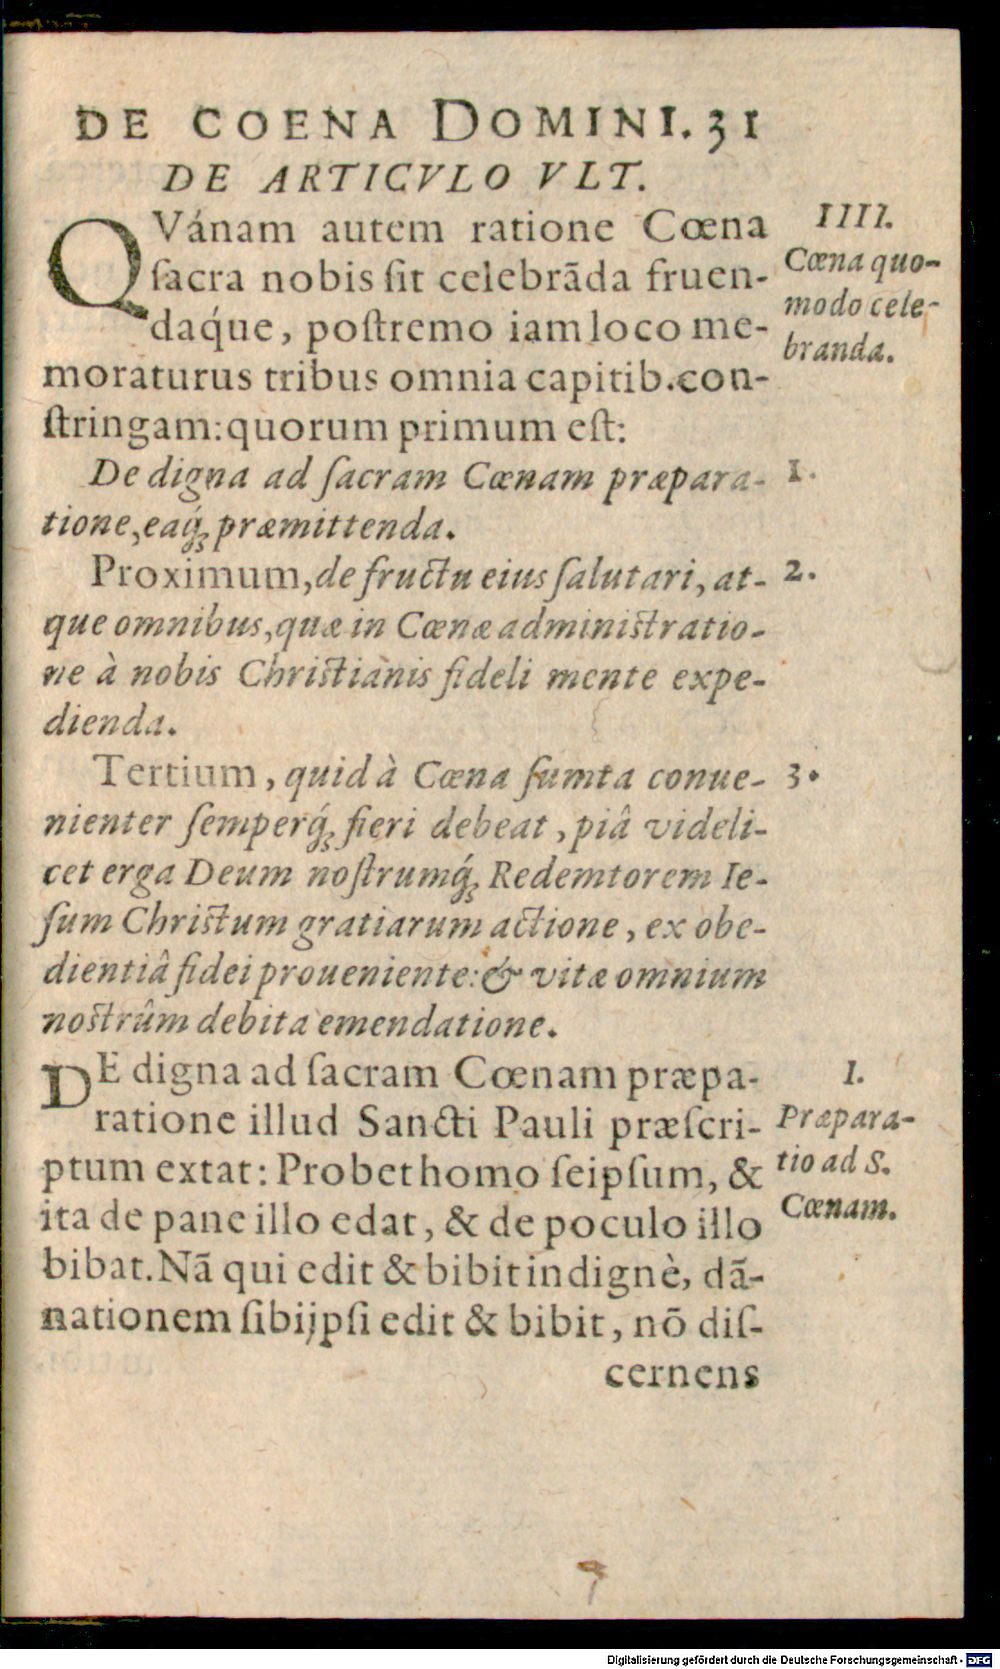 DE COENA DOMINI. 31
DE ARTICVLO VLT.
QVánam autem ratione Cœna
ſacra nobis ſit celebrãda fruen-
daq́ue, poſtremo iam loco me-
moraturus tribus omnia capitib. con-
ſtringam: quorum primum eſt:
De digna ad ſacram Cœnam præpara-
tione, eaq́ꝫ præmittenda.
Proximum, de fructu eius ſalutari, at-
que omnibus, quæ in Cœnæ adminiſtratio-
ne à nobis Chriſtianis fideli mente expe-
dienda.
Tertium, quid à Cœna ſumta conue-
nienter ſemperq́ꝫ fieri debeat, piâ videli-
cet erga Deum noſtrumq́ꝫ Redemtorem Ie-
ſum Chriſtum gratiarum actione, ex obe-
dientiâ fidei proueniente: & vitæ omnium
noſtrûm debita emendatione.
DE digna ad ſacram Cœnam præpa-
ratione illud Sancti Pauli præſcri-
ptum extat: Probet homo ſeipſum, &
ita de pane illo edat, & de poculo illo
bibat. Nã qui edit & bibit indignè, dã-
nationem ſibijpſi edit & bibit, nõ diſ-
cernens
IIII.
Cœna quo-
modo cele-
branda.
1.
2.
3.
I.
Præpara-
tio ad S.
Cœnam.
Digitalisierung gefördert durch die Deutsche Forschungsgemeinschaft - DFG